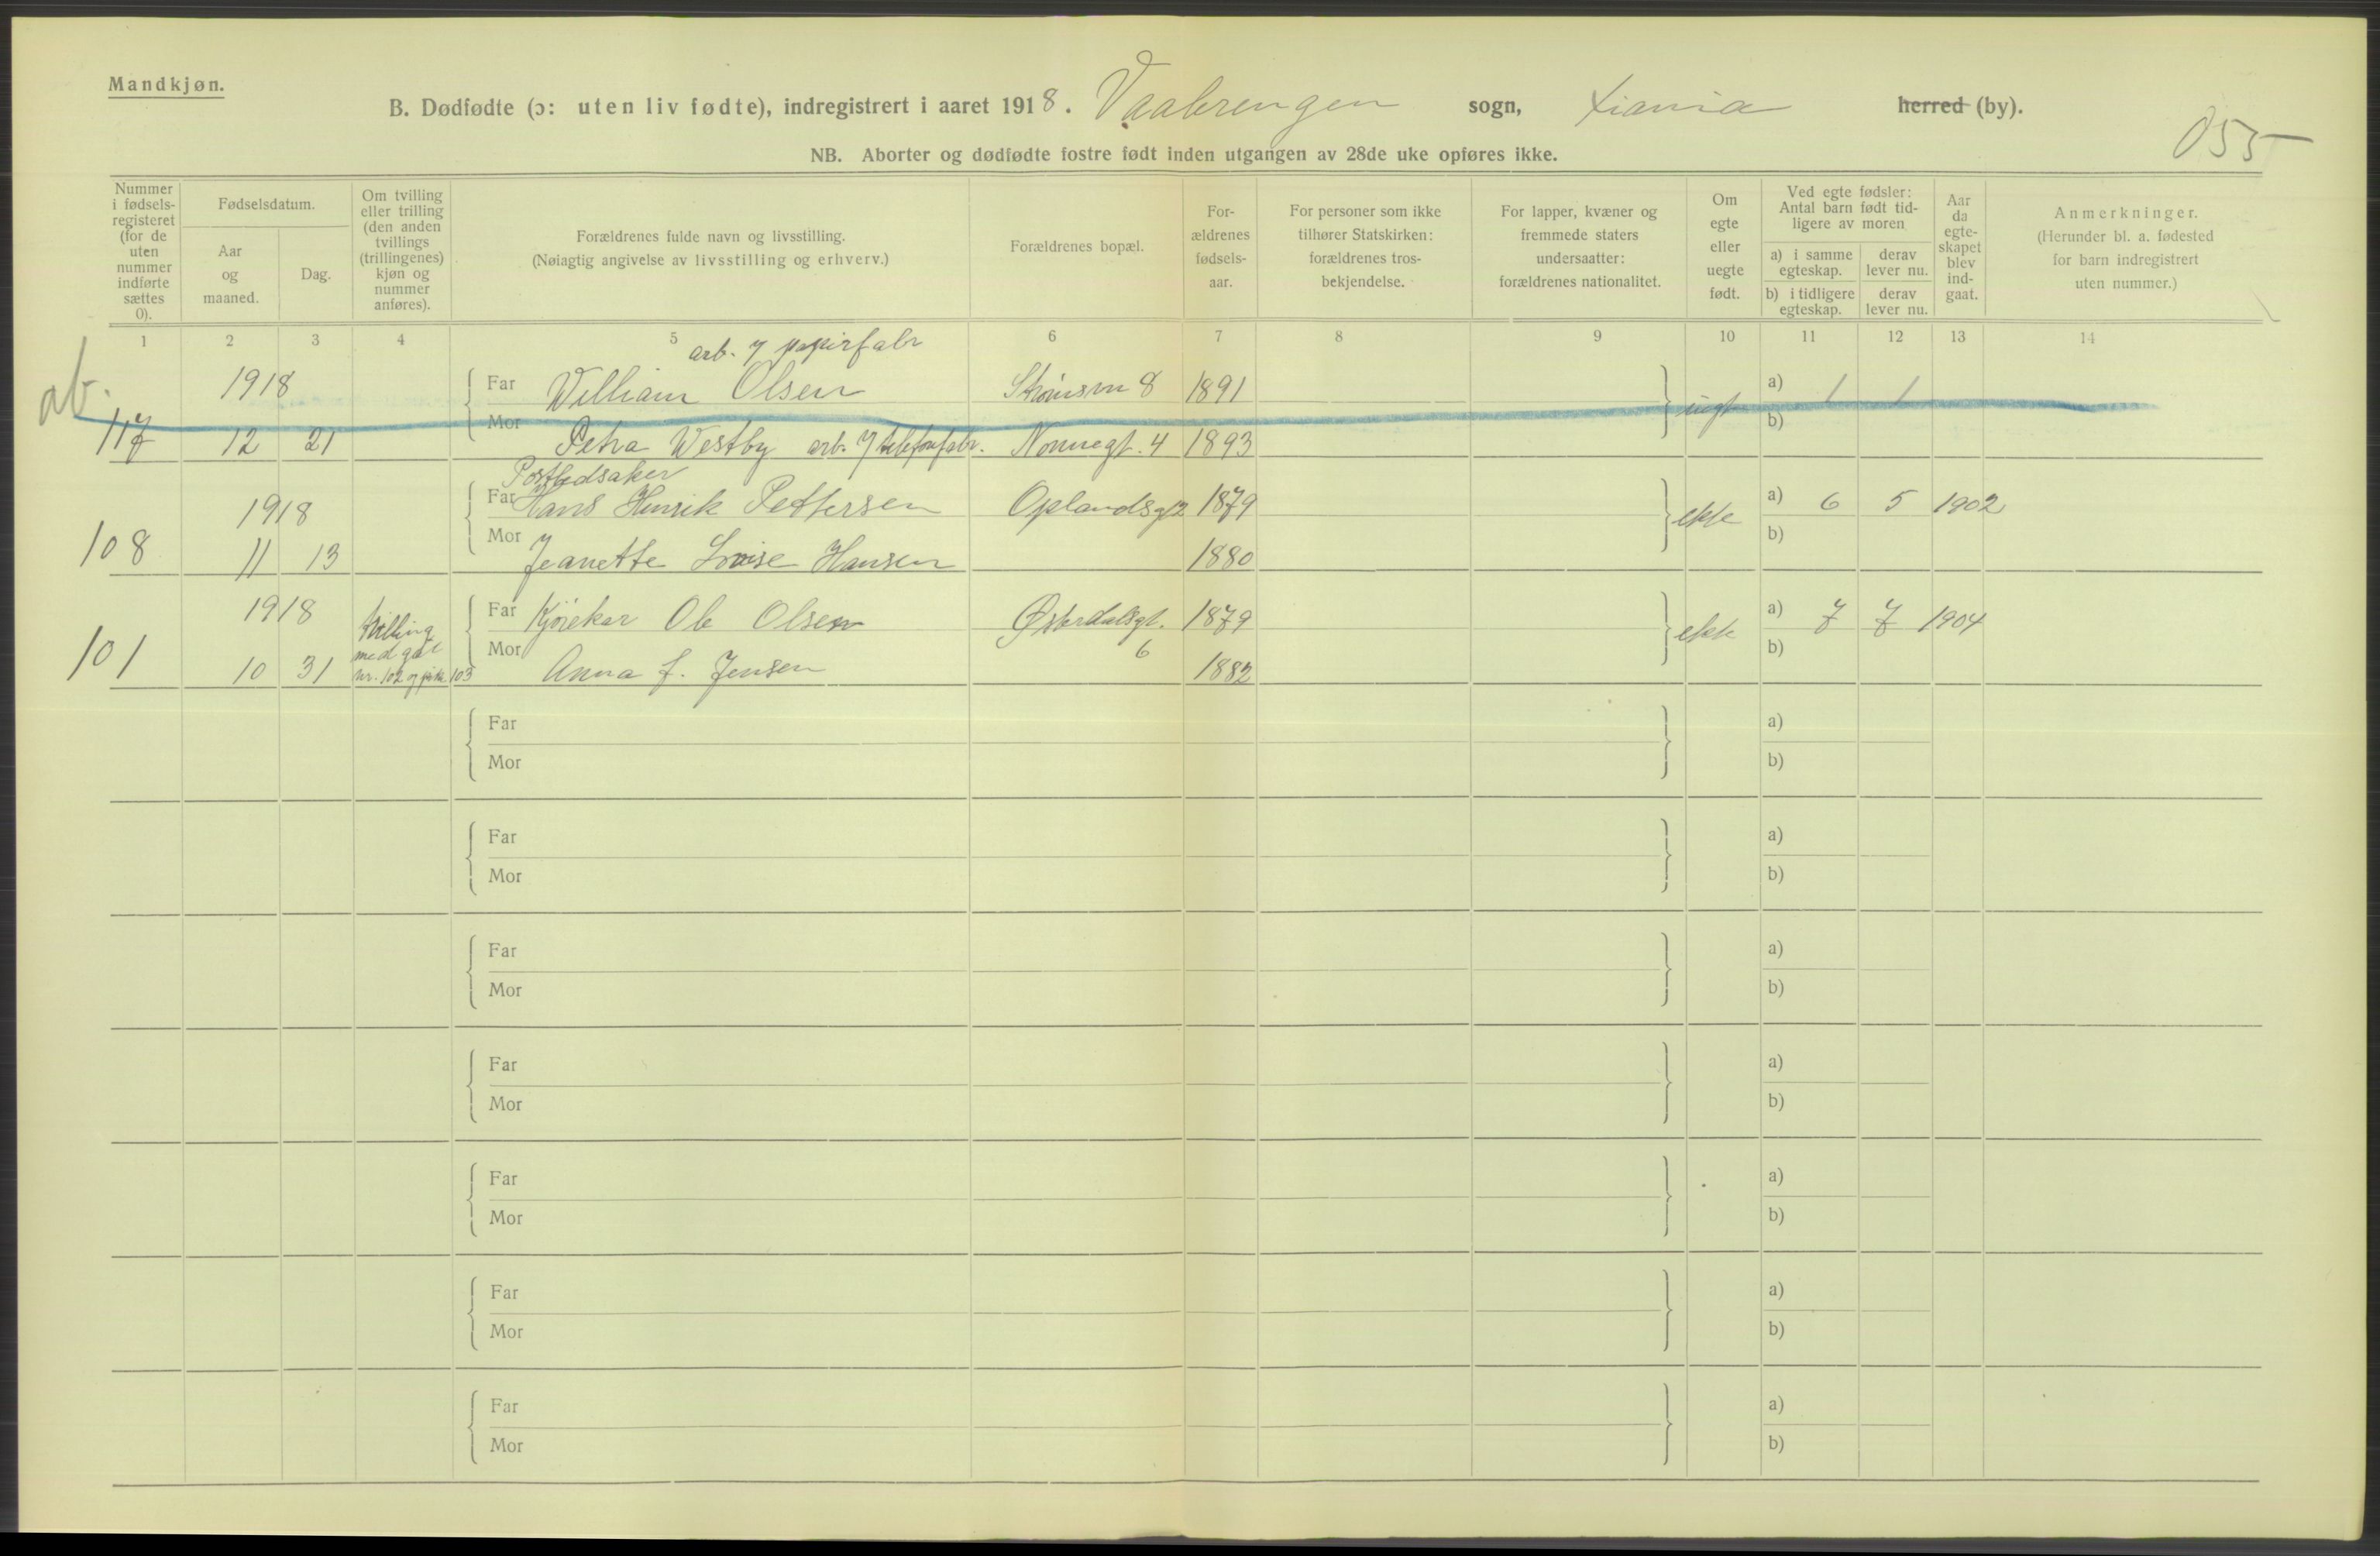 Mandkjøn.
B. Dødfødte (ɔ: uten liv fødte), indregistrert i aaret 1918. Vaalerengen sogn, Xiania herred (by).
055
NB. Aborter og dødfødte fostre født inden utgangen av 28de uke opføres ikke.
Nummer i fødsels-registeret (for de uten nummer indførte sættes 0).
Fødselsdatum.
Aar og maaned.
Dag.
Om tvilling eller trilling (den anden tvillings (trillingenes) kjøn og nummer anføres).
Forældrenes fulde navn og livsstilling.
(Nøiagtig angivelse av livsstilling og erhverv.)
Forældrenes bopæl.
For-ældrenes fødsels-aar.
For personer som ikke tilhører Statskirken: forældrenes tros-bekjendelse.
For lapper, kvæner og fremmede staters undersaatter: forældrenes nationalitet.
Om egte eller uegte født.
Ved egte fødsler: Antal barn født tid-ligere av moren
a) i samme egteskap.
derav lever nu.
b) i tidligere egteskap.
derav lever nu.
Aar da egte-skapet blev ind-gaat.
Anmerkninger.
(Herunder bl. a. fødested for barn indregistrert uten nummer.)
1 2 3 4 5 6 7 8 9 10 11 12 13 14
ab.
arb. 7 papirfabr
1918 Far William Olsen 8 1891 uegt a) 1 1
117 12 21 Mor Petra Westby arb. 7 telefonfabr. Nonnegt. 4 1893 b)
Postbedsaker
1918 Far Hans Henrik Pettersen Oplandsgt 2 1879 ekte a) 6 5 1902
108 11 13 Mor Jeanette Lovise Hansen 1880 b)
1918 Far Kjørekar Ole Olsen Østerdalsgt. 6 1879 ekte a) 7 7 1904
101 10 31 trilling med gut nr. 102 og pike 103 Mor Anna f. Jensen 1882 b)
Far a)
Mor b)
Far a)
Mor b)
Far a)
Mor b)
Far a)
Mor b)
Far a)
Mor b)
Far a)
Mor b)
Far a)
Mor b)